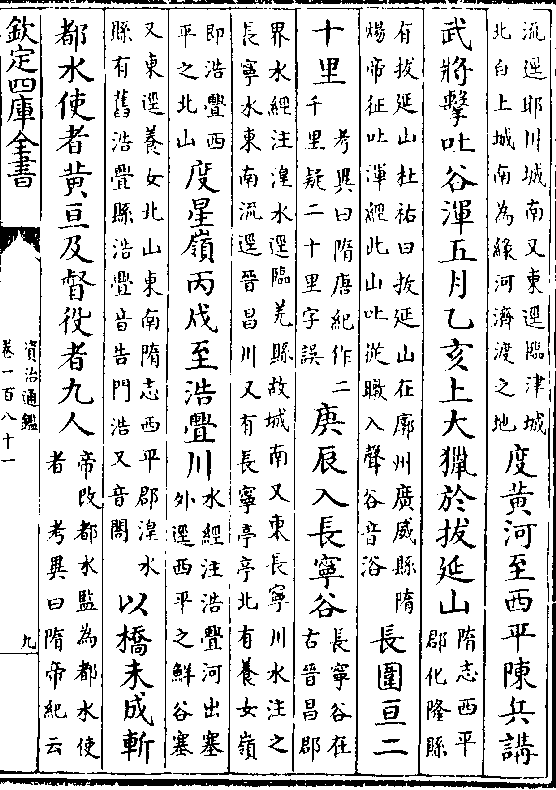 流逕耶川城南又東逕臨津城
北白土城南為緣河濟渡之地
度黃河至西平陳兵講
武將擊吐谷渾五月乙亥上大獵於拔延山
隋志西平
郡化隆縣
有拔延山杜祐曰拔延山在廓州廣威縣隋
煬帝征吐渾經此山吐從暾入聲谷音浴
長圍亘二
十里
考異曰隋唐紀作二
千里疑二十里字誤
庚辰入長寧谷
長寧谷在
古晉昌郡
界水經注湟水逕臨羌縣故城南又東長寧川水注之
長寧水東南流逕晉昌川又有長寧亭亭北有養女嶺
即浩亹西
平之北山
度星嶺丙戌至浩亹川
水經注浩亹河出塞
外逕西平之鮮谷塞
又東逕養女北山東南隋志西平郡湟水
縣有舊浩亹縣浩亹音告門浩又音閤
以橋未成斬
都水使者黃亘及督役者九人
帝改都水監為都水使
者 考異曰隋帝紀云
欽定四庫全書
資治通鑑
卷一百八十一
九